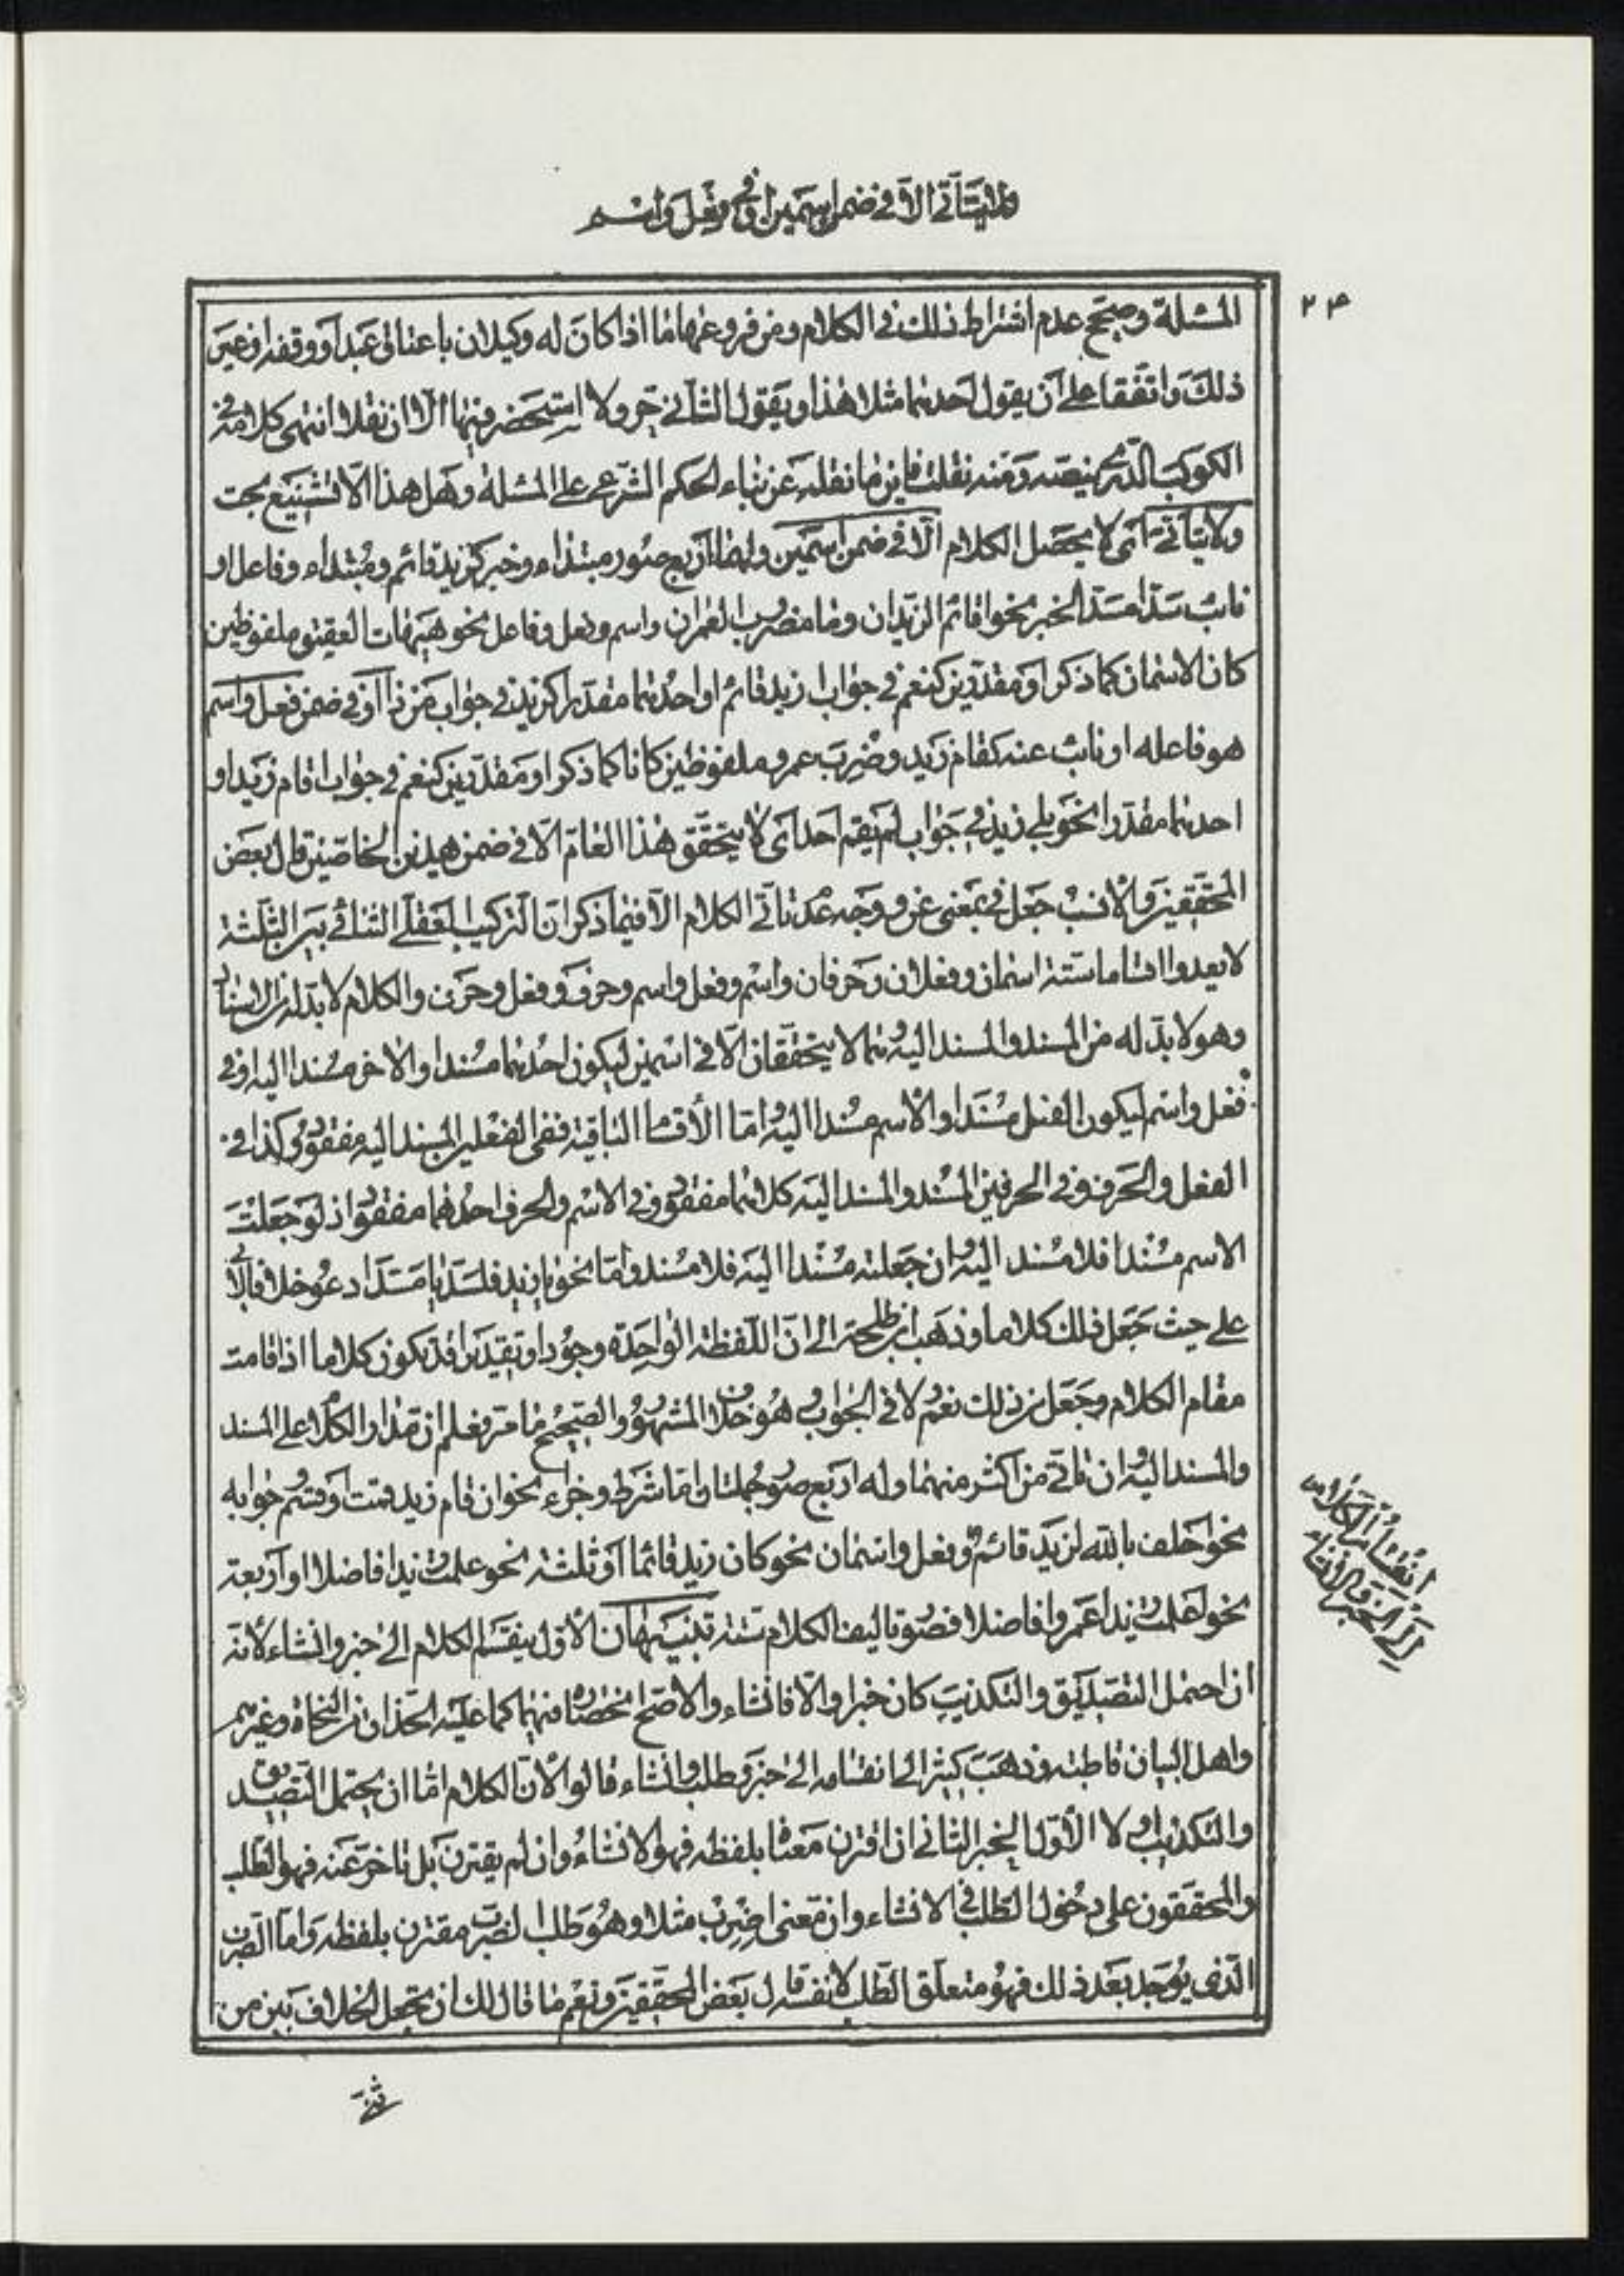 ولا یتأتّى الّا فی ضمن اسمین او فی فعل و اسم
۲۴
المسئلة وصحّح عدم اشتراط ذلك فی الكلام ومن فروعها ما اذا كان له وكیلان باعتاق عبد او وقفه او غیر
ذلك واتّفقا على ان یقول احدهما مثلا هذا ویقول الثانی حر ولا استحضر فیها الّا ان نقلا انتهى كلامه فی
الكوكب الدّری بنصّه ومنه نقلت فاین ما نقله عن بناء الحكم الشّرعی على المسئلة وهل هذا الّا تشنیع بحت
ولا یتأتّى اى لا یحصل الكلام الّا فی ضمن اسمین ولهما اربع صور مبتداء وخبر كزید قائم ومبتداء وفاعل او
نائب سدّا مسدّ الخبر نحو اقائم الزیدان وما مضروب العمران واسم وفعل وفاعل نحو هیهات العقیق وملفوظین
كان الاسمان كما ذكر او مقدّرین كنعم فی جواب ازید قائم او احدهما مقدّرا كزید فی جواب من ذا او فی ضمن فعل واسم
هو فاعله او نائب عنه كقام زید وضرب عمرو ملفوظین كانا كما ذكر او مقدّرین كنعم فی جواب اقام زید او
احدهما مقدّرا نحو بلى زید فی جواب لم یقم احد اى لا یتحقّق هذا العامّ الّا فی ضمن هذین الخاصّین قال بعض
المحقّقین والانسب جعل فی بمعنى من ووجه عدم تأتّی الكلام الّا فیما ذكر انّ التركیب العقلی الثنائی بین الثلثة
لا یعدوا اقساما ستّة اسمان وفعلان وحرفان واسم وفعل واسم وحرف وفعل وحرف والكلام لا بدّ له من الاسناد
وهو لا بدّ له من المسند والمسند الیه وهما لا یتحقّقان الّا فی اسمین لیكون احدهما مسندا والاخر مسندا الیه او فی
فعل واسم لیكون الفعل مسندا والاسم مسندا الیه وامّا الأقسام الباقیة ففی الفعلین المسند الیه مفقود وكذا فی
الفعل والحرف وفی الحرفین المسند والمسند الیه كلاهما مفقود وفی الاسم والحرف احدهما مفقود اذ لو جعلت
الاسم مسندا فلا مسند الیه وان جعلته مسندا الیه فلا مسند وامّا نحو یا زید فلسدّ یا مسدّ ادعو خلافا لأبی
علی حیث جعل ذلك كلاما وذهب ابن طلحة الى انّ اللفظة الواحدة وجودا وتقدیرا قد تكون كلاما اذا قامت
مقام الكلام وجعل من ذلك نعم ولا فی الجواب وهو خلاف المشهور والصّحیح ما مر فعلم ان مدار الكلام على المسند
والمسند الیه وان تأتّی من اكثر منهما وله اربع صور جملتان امّا شرط وجزاء نحو ان قام زید قمت او قسم وجوابه
نحو احلف بالله لزید قائم وفعل واسمان نحو كان زید قائما او ثلثة نحو علمت زیدا فاضلا او اربعة
نحو اعلمت زیدا عمروا فاضلا فصور تألیف الكلام ستّة تنبیهان الأوّل ینقسم الكلام الى خبر وانشاء لأنّه
ان احتمل التصدیق والتكذیب كان خبرا والّا فانشاء والأصحّ انحصاره فیهما كما علیه الحذاق من النحاة وغیرهم
واهل البیان قاطبة وذهب كثیر الى انقسامه الى خبر وطلب وانشاء قالوا لأنّ الكلام امّا ان یحتمل التصدیق
والتكذیب او لا الأوّل الخبر الثانی ان اقترن معناه بلفظه فهو الانشاء وان لم یقترن بل تاخر عنه فهو الطلب
والمحقّقون على دخول الطلب فی الانشاء وان معنى اضرب مثلا وهو طلب الضرب مقترن بلفظه وامّا الضرب
الّذی یوجد بعد ذلك فهو متعلّق الطلب لا نفسه قال بعض المحقّقین ونعم ما قال لك ان تجعل الخلاف بین من
انقسام الكلام
الى الخبر والانشاء